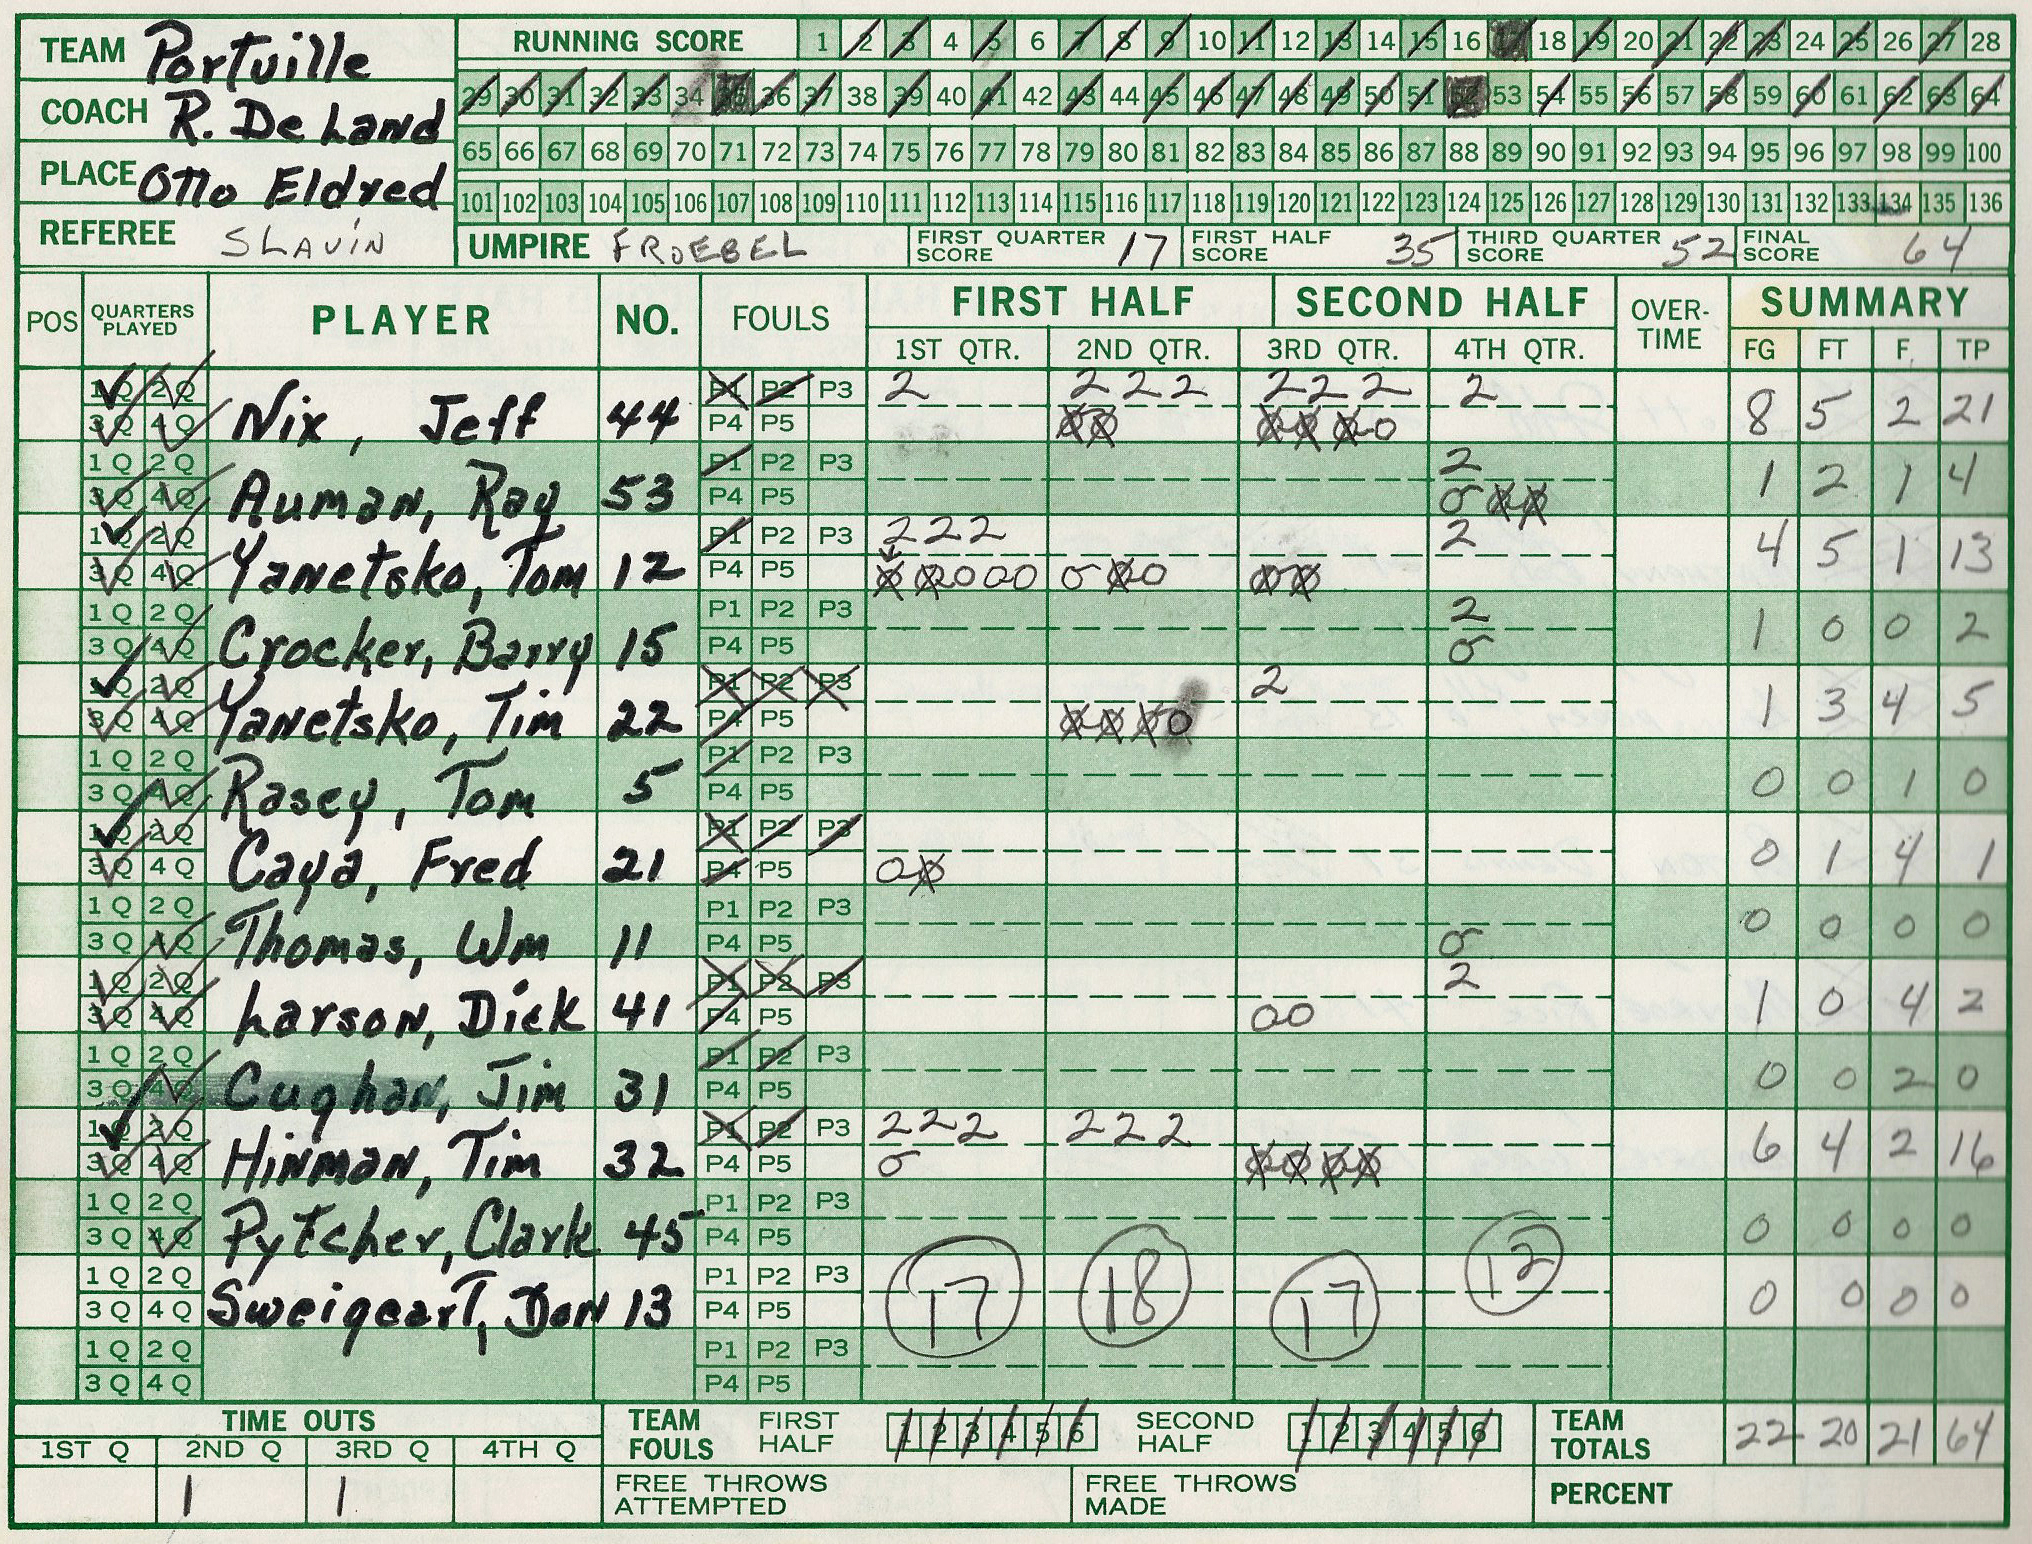 TEAM Portville
COACH R. De Land
PLACE Otto Eldred
REFEREE SLAVIN
RUNNING SCORE 1 2 3 4 5 6 7 8 9 10 11 12 13 14 15 16 17 18 19 20 21 22 23 24 25 26 27 28
29 30 31 32 33 34 35 36 37 38 39 40 41 42 43 44 45 46 47 48 49 50 51 52 53 54 55 56 57 58 59 60 61 62 63 64
65 66 67 68 69 70 71 72 73 74 75 76 77 78 79 80 81 82 83 84 85 86 87 88 89 90 91 92 93 94 95 96 97 98 99 100
101 102 103 104 105 106 107 108 109 110 111 112 113 114 115 116 117 118 119 120 121 122 123 124 125 126 127 128 129 130 131 132 133 134 135 136
UMPIRE FROEBEL FIRST QUARTER SCORE 17 FIRST HALF SCORE 35 THIRD QUARTER SCORE 52 FINAL SCORE 64
POS QUARTERS PLAYED PLAYER NO. FOULS FIRST HALF SECOND HALF OVER-TIME SUMMARY
1ST QTR. 2ND QTR. 3RD QTR. 4TH QTR. FG FT F. TP
1Q 2Q P1 P2 P3 2 2 2 2 2 2 2 2
3Q 4Q Nix, Jeff 44 P4 P5 8 5 2 21
1Q 2Q P1 P2 P3 2
3Q 4Q Auman, Ray 53 P4 P5 1 2 1 4
1Q 2Q P1 P2 P3 2 2 2 2
3Q 4Q Yanetsko, Tom 12 P4 P5 4 5 1 13
1Q 2Q P1 P2 P3 2
3Q 4Q Crocker, Barry 15 P4 P5 1 0 0 2
1Q 2Q P1 P2 P3 2
3Q 4Q Yanetsko, Tim 22 P4 P5 1 3 4 5
1Q 2Q P1 P2 P3
3Q 4Q Rasey, Tom 5 P4 P5 0 0 1 0
1Q 2Q P1 P2 P3
3Q 4Q Caya, Fred 21 P4 P5 0 1 4 1
1Q 2Q P1 P2 P3
3Q 4Q Thomas, Wm 11 P4 P5 0 0 0 0
1Q 2Q P1 P2 P3 2
3Q 4Q Larson, Dick 41 P4 P5 0 0 1 0 4 2
1Q 2Q P1 P2 P3
3Q 4Q Cughan, Jim 31 P4 P5 0 0 2 0
1Q 2Q P1 P2 P3 2 2 2 2 2 2
3Q 4Q Hinman, Tim 32 P4 P5 6 4 2 16
1Q 2Q P1 P2 P3
3Q 4Q Pytcher, Clark 45 P4 P5 0 0 0 0
1Q 2Q P1 P2 P3 17 18 17 12
3Q 4Q Sweigeart, Don 13 P4 P5 0 0 0 0
1Q 2Q P1 P2 P3
3Q 4Q P4 P5
TIME OUTS TEAM FOULS FIRST HALF 1 2 3 4 5 6 SECOND HALF 1 2 3 4 5 6 TEAM TOTALS 22 20 21 64
1ST Q 2ND Q 3RD Q 4TH Q
1 1 FREE THROWS ATTEMPTED FREE THROWS MADE PERCENT